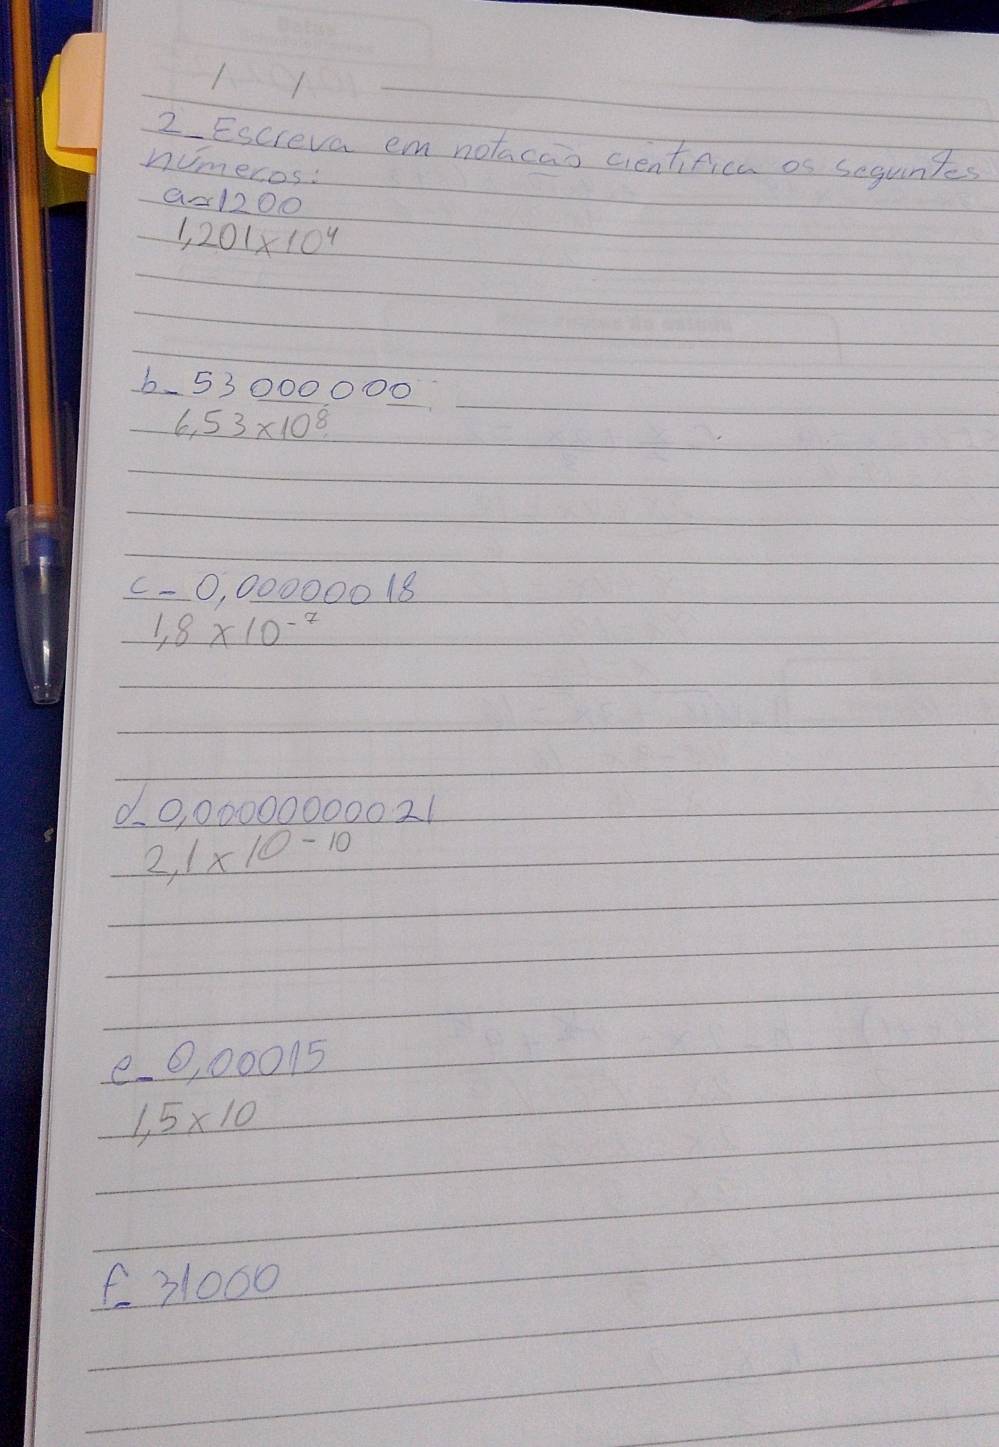 / /
2-Escreva em notacão cientifica os seguintes
números:
a-1200
1,201x10⁴
b-53 000 000
6,53x10⁸
c-0,00000018
1,8 x 10⁻⁷
d-0,00000000021
2,1 x 10⁻¹⁰
e-0,00015
1,5x10
f-31000